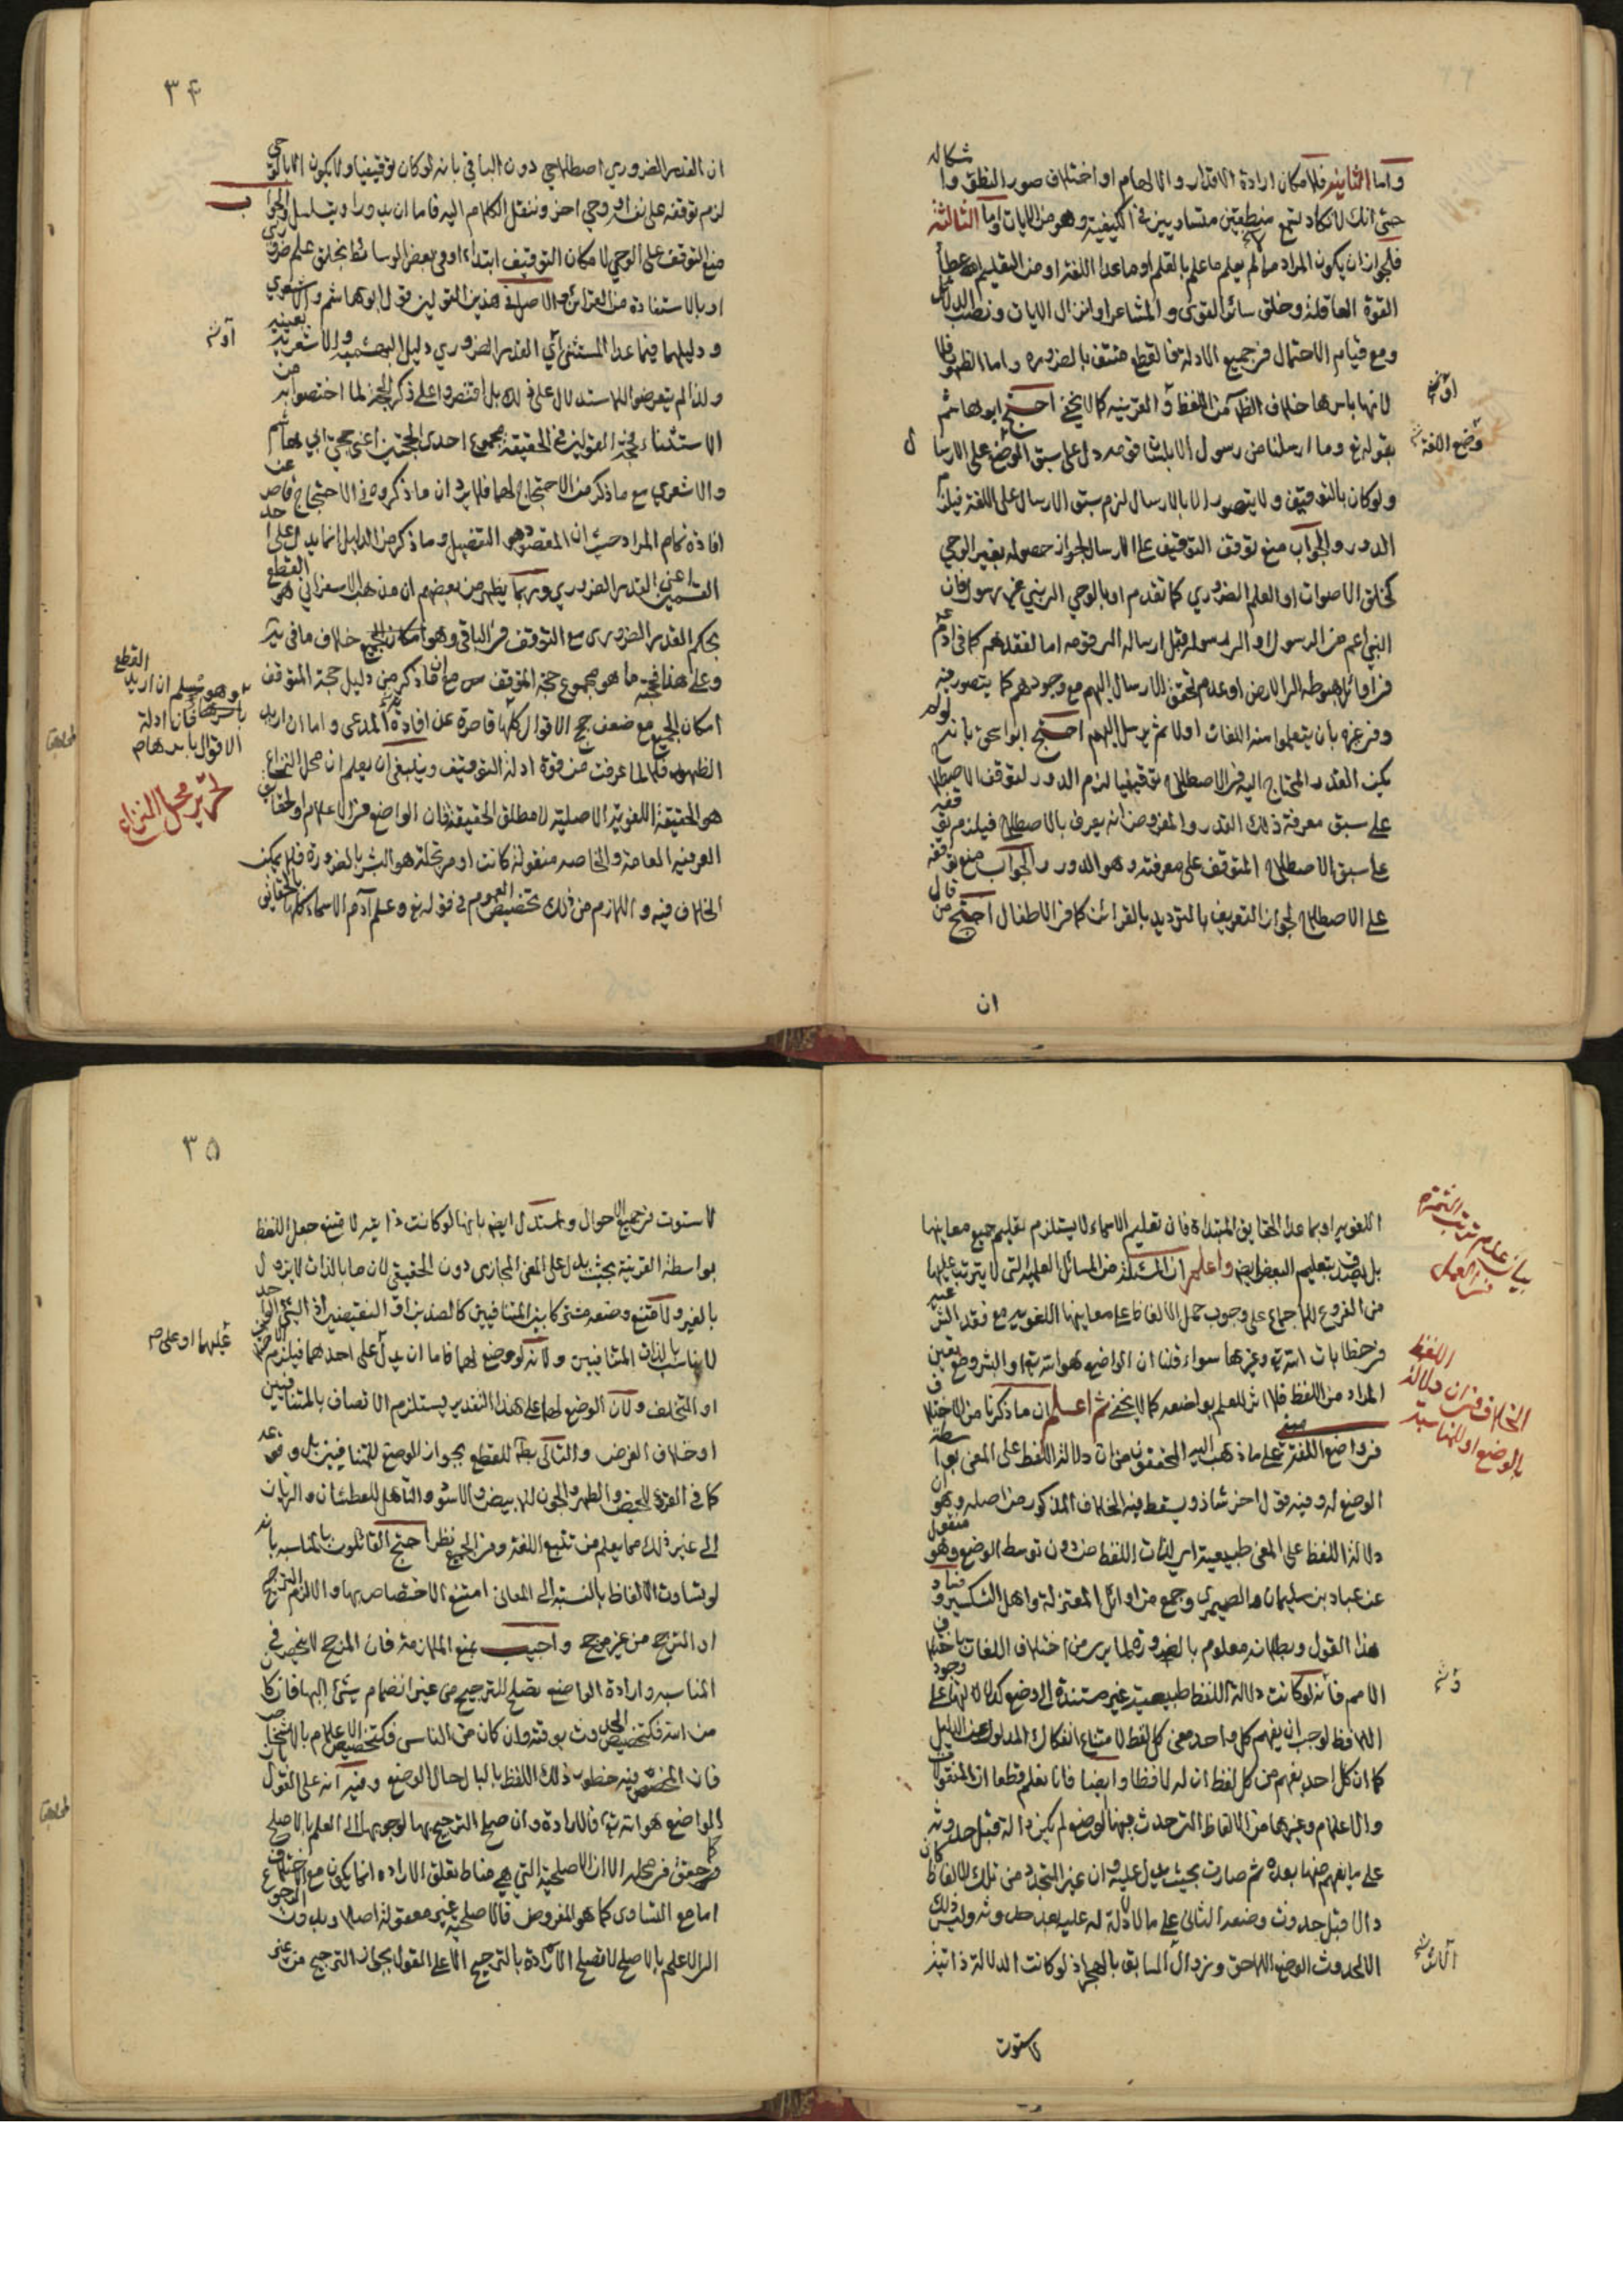 واما الثانية فلامكان ارادة الاقدار والالهام او اختلاف صور النطق واشكاله
حتى انك لا تكاد تسمع منطقين متساويين في الكيفية وهو من الايات واما الثالثة
فلجواز ان يكون المراد ما لم يعلم ما علم بالقلم او ما عدا اللغة او من التعليم
القوة العاقلة وخلق سائر القوى والمشاعر او انزال الايات ونصب الدلائل
ومع قيام الاحتمال في جميع الادلة فالقطع منتف بالضرورة واما الظهور فلا
لانها باسرها خلاف الظاهر من اللفظ والقرينة كما لا يخفى احتج ابو هاشم
بقوله تع وما ارسلنا من رسول الا بلسان قومه دل على سبق الوضع على الارسال
ولو كان بالتوقيف ولا يتصور الا بالارسال لزم سبق الارسال على اللغة فيلزم
الدور والجواب منع توقف التوقيف على الارسال لجواز حصوله بغير الوحي
كخلق الاصوات او العلم الضروري كما تقدم او بالوحي الى نبي غير رسول فان
النبي اعم من الرسول او الى رسول قبل ارساله الى قومه اما لفقدهم كما في ادم ع
في اوائل هبوطه الى الارض او عدم تحقق الارسال اليهم مع وجودهم كما يتصور فيه
وفي غيره بان يتعلموا منه اللغات اولا ثم يرسل اليهم احتج ابو اسحق بانه لو لم
يكن القدر المحتاج اليه في الاصطلاح توقيفيا لزم الدور لتوقف الاصطلاح
على سبق معرفة ذلك القدر والمفروض انه يعرف بالاصطلاح فيلزم توقفه
على سبق الاصطلاح المتوقف على معرفته وهو الدور والجواب منع توقفه
على الاصطلاح لجواز التعريف بالترديد بالقرائن كما في الاطفال احتج من قال
ان
وضع اللغة
٣٤
ان القدر الضروري اصطلاحي دون الباقي بانه لو كان توقيفيا ولا يكون الا بالوحي
لزم توقفه على نفسه او وحي اخر وننقل الكلام اليه فاما ان يدور او يتسلسل والجواب
منع التوقف على الوحي لامكان التوقيف ابتداء او في بعض الوسائط بخلق علم ضروري
او بالاستفادة من القرائن والاصل في هذين القولين قول ابو هاشم والاشعري
ودليلهما فيما عدا المستثنى اي القدر الضروري دليل البهشمية والاشعرية بعينه
ولذا لم يتعرضوا للاستدلال على ذلك بل اقتصروا على ذكر الحجة لما اختصوا به من
الاستثناء فحجة القولين في الحقيقة مجموع احدى الحجتين اعني حجتي ابي هاشم
والاشعري مع ما ذكر من الاحتجاج لهما فلا يرد ان ما ذكروه في الاحتجاج قاصر عن
افادة تمام المراد حيث ان المقصود هو التفصيل وما ذكر من الدليل انما يدل على احد
القسمين اعني القدر الضروري وربما يظهر من بعضهم ان مذهب الاسفرائني هو القطع
بحكم القدر الضروري مع التوقف في الباقي وهو امكان الجميع خلاف ما في
وعلى هذا فحجته ما هو مجموع حجة الموقف مع ما ذكر من دليل حجة المتوقف
امكان الجميع مع ضعف حجج الاقوال كلها قاصرة عن افادة المدعى واما ان اريد
الظهور فلا لما عرفت من قوة ادلة التوقيف وينبغي ان يعلم ان محل النزاع
هو الحقيقة اللغوية الاصلية لا مطلق الحقيقة فان الواضع في الاعلام والحقايق
العرفية العامة والخاصة منقولة كانت او مرتجلة هو البشر بالضرورة فلا يمكن
الخلاف فيه واللازم من ذلك تخصيص العموم في قوله تع وعلم آدم الاسماء كلها بالحقايق
وهو مسلم ان اريد القطع
باحدها فان ادلة
الاقوال باسرها
تحرير محل النزاع
اللغوية او بما عدا الحقايق المبتداة فان تعليم الاسماء لا يستلزم تعليم جميع معانيها
بل يصدق بتعليم البعض ايضا واعلم ان المسئلة من المسائل العلمية التي لا يترتب عليها
من الفروع للاجماع على وجوب حمل الالفاظ على معانيها اللغوية مع فقد الشرعية
في خطابات الله تع وغيرها سواء قلنا ان الواضع هو الله تع او البشر ومع تعيين
المراد من اللفظ فلا اثر للعلم بواضعه كما لا يخفى ثم اعلم ان ما ذكرنا من الاختلاف
في واضع اللغة مبني على ما ذهب اليه المحققون من ان دلالة اللفظ على المعنى بواسطة
الوضع له وفيه قول اخر شاذ ويسقط فيه الخلاف المذكور من اصله وهو ان
دلالة اللفظ على المعنى طبيعية اي لذات اللفظ من دون توسط الوضع وهو منقول
عن عباد بن سليمان والصيمري وجمع من اوائل المعتزلة واهل التكسير وفساد
هذا القول وبطلانه معلوم بالضرورة لما يرى من اختلاف اللغات باختلاف
الامم فانه لو كانت دلالة اللفظ طبيعية غير مستندة الى وضع
اللافظ لوجب ان يفهم كل واحد معنى كل لفظ لامتناع انفكاك المدلول عن الدليل
كما ان كل احد يفهم من كل لفظ ان له لافظا وايضا فانا نعلم قطعا ان المنقولات
والاعلام وغيرها من الالفاظ التي حدث فيها الوضع لم يكن دالة قبل حدوثه
على ما يفهم منها بعده ثم صارت بحيث يدل عليه وان غير المتجدد من تلك الالفاظ كان
دالا قبل حدوث وضعه الثاني على ما لا دلالة له عليه بعد حدوثه وليس ذلك
الا لحدوث الوضع اللاحق وزوال السابق بالهجر اذ لو كانت الدلالة ذاتية
لاستوت
بيان عدم ترتب الثمرة
في العمل
الخلاف في ان دلالة اللفظ
بالوضع او للمناسبة
٣٥
لاستوت في جميع الاحوال ويستدل ايضا بانها لو كانت ذاتية لامتنع جعل اللفظ
بواسطة القرينة بحيث يدل على المعنى المجازي دون الحقيقي لان ما بالذات لا يزول
بالغير ولامتنع وضعه مشتركا بين المتنافيين كالضدين او النقيضين اذ الشئ الواحد
لا يناسب بالذات المتنافيين ولانه لو وضع لهما فاما ان يدل على احدهما فيلزم
او التخلف ولان الوضع لهما على هذا التقدير يستلزم الاتصاف بالمتنافيين
او خلاف الفرض والتالي بط للقطع بجواز الوضع للمتنافيين بل وقوعه
كما في القرء للحيض والطهر والجون للابيض والاسود والناهل للعطشان والريان
الى غير ذلك مما يعلم من تتبع اللغة وفي الجميع نظر احتج القائلون بالمناسبة بانه
لو تساوت الالفاظ بالنسبة الى المعاني امتنع الاختصاص بها والا لزم الترجيح
او الترجح من غير مرجح واجيب بمنع الملازمة فان المرجح لا ينحصر في
المناسبة وارادة الواضع تصلح للترجيح من غير انضمام شئ اليها فان كان
من الله فكتخصيص الحدوث بوقته وان كان من الناس فكتخصيص الاعلام بالاشخاص
فان المخصص فيه خطور ذلك اللفظ بالبال حال الوضع وفيه انه على القول بان
الواضع هو الله تع فالارادة وان صح الترجيح بها لرجوعها الى العلم بالاصلح
كما حقق في محله الا ان الاصلحية التي هي مناط تعلق الارادة انما يكون مع اختلاف
اما مع التساوي كما هو المفروض فالاصلحية غير معقولة اصلا وبدون الرجوع
الى العلم بالاصلح لا تصلح الارادة بالترجيح الا على القول بجواز الترجيح من غير
عليهما او على